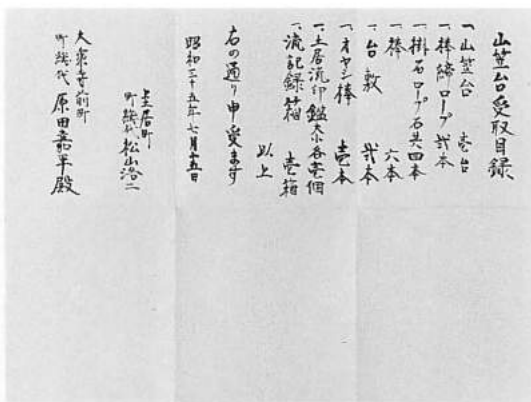 山笠台受取目録
一、山笠台 壱台
一、棒締ロープ 弐本
一、掛石ロープ石共四本
一、棒 六本
一、台敷 弐本
一、オヤシ棒 壱本
一、土居流印鑑大小各壱個
一、流記録箱 壱箱
以上
右の通り申受ます
昭和三十五年七月十五日
土居町
町総代 松山浩二
大乗寺前町
町総代 原田嘉平殿